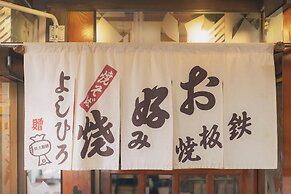 鉄板焼
お好み焼
焼そば
よしひろ
贈